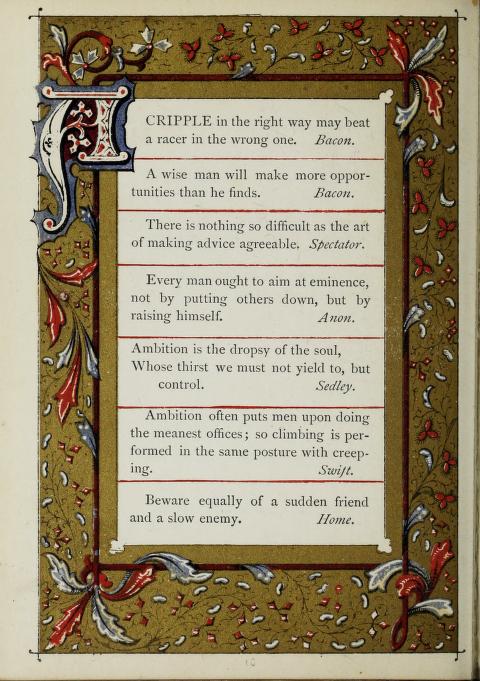 A CRIPPLE in the right way may beat
a racer in the wrong one. Bacon.
A wise man will make more oppor-
tunities than he finds. Bacon.
There is nothing so difficult as the art
of making advice agreeable. Spectator.
Every man ought to aim at eminence,
not by putting others down, but by
raising himself. Anon.
Ambition is the dropsy of the soul,
Whose thirst we must not yield to, but
control. Sedley.
Ambition often puts men upon doing
the meanest offices; so climbing is per-
formed in the same posture with creep-
ing. Swift.
Beware equally of a sudden friend
and a slow enemy. Home.